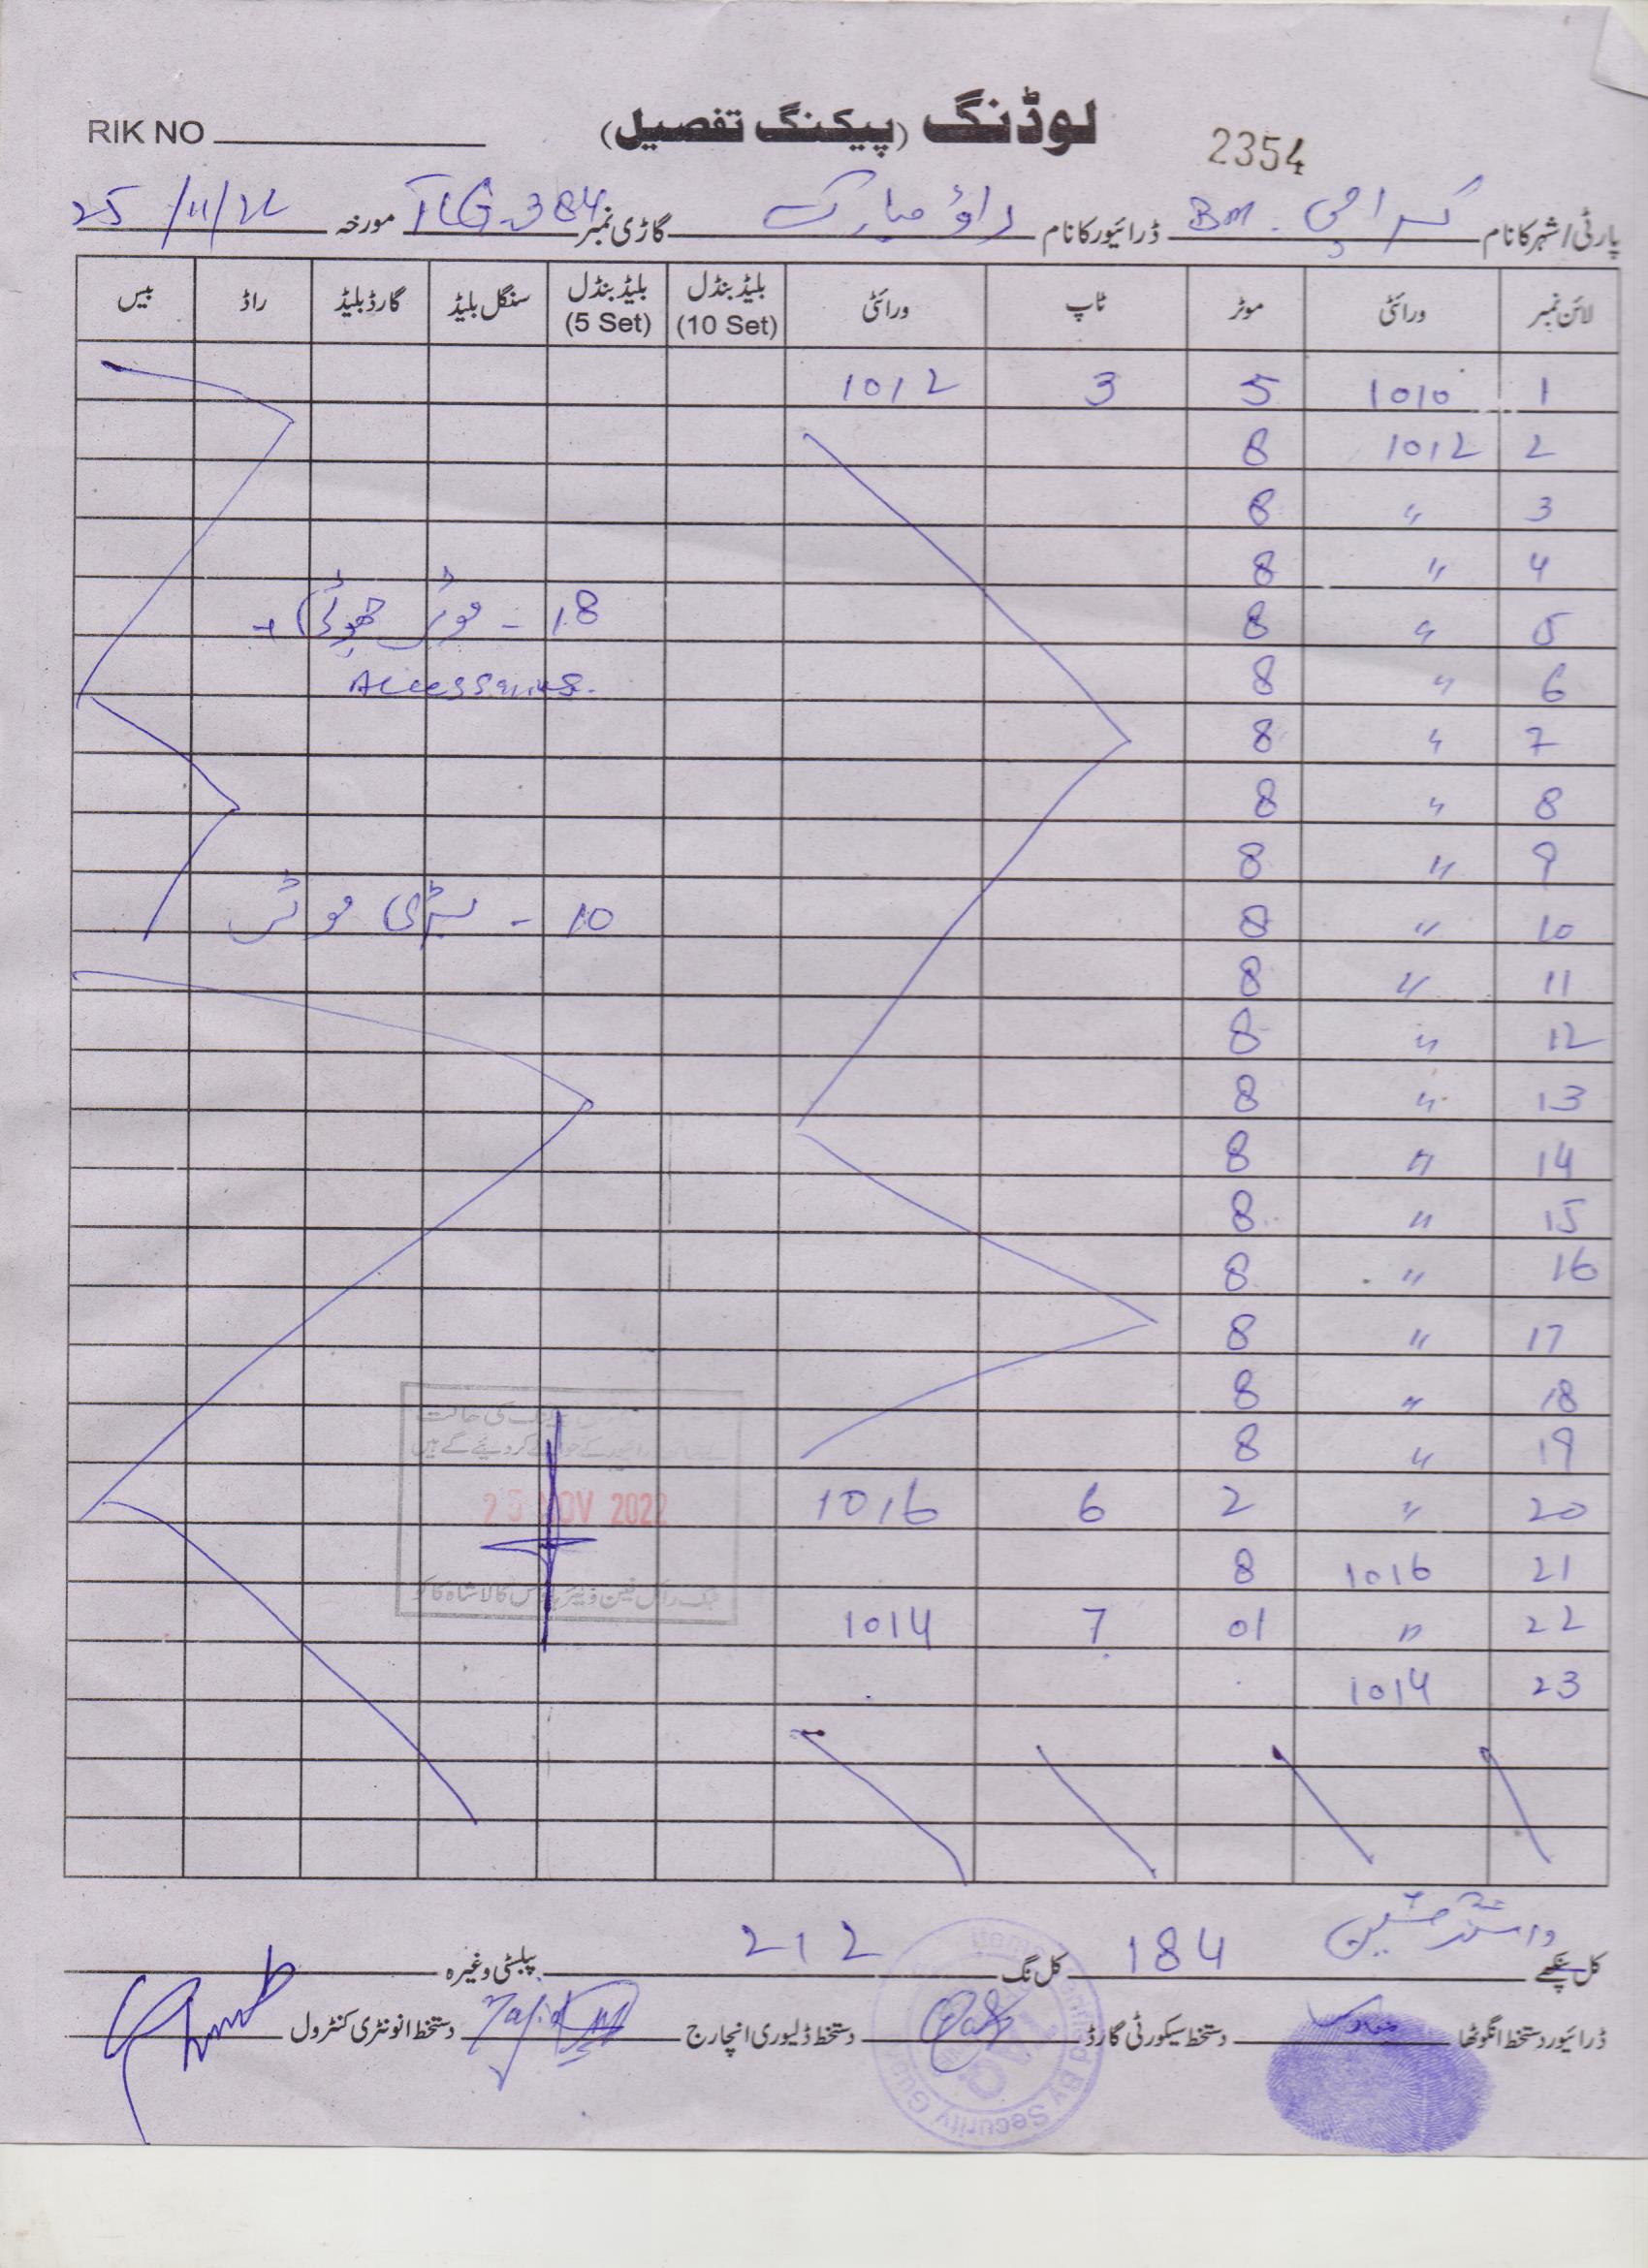 RIK NO
لوڈنگ (پیکنگ تفصیل)
2354
پارٹی/شہر کا نام کراچی BM. ڈرائیور کا نام راؤ مبارک گاڑی نمبر 384 مورخہ 25/11/22
لائن نمبر ورائٹی موٹر ٹاپ ورائٹی بلیڈ بنڈل (10 Set) بلیڈ بنڈل (5 Set) سنگل بلیڈ گارڈ بلیڈ راڈ بیس
1 1010 5 3 1012
2 1012 8
3 〃 8
4 〃 8
5 〃 8 18 - موٹر چھوٹی +
6 〃 8 Accessories.
7 〃 8
8 〃 8
9 〃 8
10 〃 8 10 - بڑی موٹر
11 〃 8
12 〃 8
13 〃 8
14 〃 8
15 〃 8
16 〃 8
17 〃 8
18 〃 8
19 〃 8
20 〃 2 6 1016
21 1016 8
22 〃 01 7 1014
23 1014
کی حالت
کر دیئے گئے ہیں
25 NOV 2022
کالا شاہ کاکو
کل پنکھے 184 کل نگ 212 پبلٹی وغیرہ
ڈرائیور دستخط انگوٹھا مبارک دستخط سیکورٹی گارڈ دستخط ڈلیوری انچارج دستخط انونٹری کنٹرول
By Security Guard